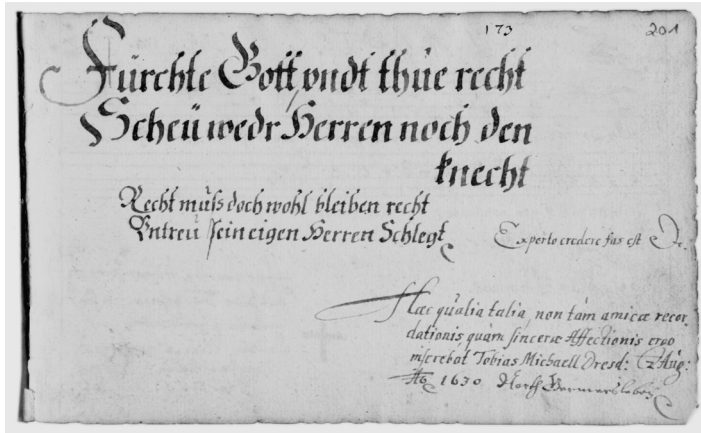 173
201
Fürchte Gott, vndt thue recht
Scheü wedr Herren noch den
knecht
Recht muß doch wohl bleiben recht
Vntreü sein eigen Herren Schlegt
Experto credere fas est
Hæc qualia talia, non tàm amicæ recor,
dationis quàm sinceræ Affectionis ergo
inserebat Tobias Michaell Dresd: Aug:
Aõ 1630